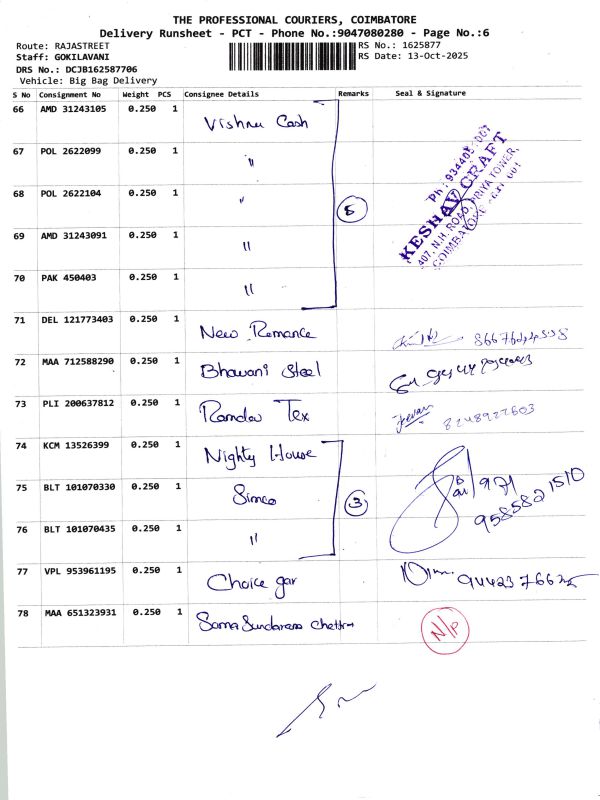 THE PROFESSIONAL COURIERS, COIMBATORE
Delivery Runsheet - PCT - Phone No.:9047080280 - Page No.:6
Route: RAJASTREET
RS No.: 1625877
Staff: GOKILAVANI
RS Date: 13-Oct-2025
DRS No.: DCJB162587706
Vehicle: Big Bag Delivery
S No Consignment No Weight PCS Consignee Details Remarks Seal & Signature
66 AMD 31243105 0.250 1 Vishnu Cash
67 POL 2622099 0.250 1 "
68 POL 2622104 0.250 1 " 5
69 AMD 31243091 0.250 1 "
70 PAK 450403 0.250 1 "
KESHAV CRAFT
407, N.H. ROAD, PRIYA TOWER,
COIMBATORE
71 DEL 121773403 0.250 1 New Romance
72 MAA 712588290 0.250 1 Bhawani Steel
73 PLI 200637812 0.250 1 Ramdev Tex 8248927603
74 KCM 13526399 0.250 1 Nighty House
75 BLT 101070330 0.250 1 Simco 3 9585821510
76 BLT 101070435 0.250 1 "
77 VPL 953961195 0.250 1 Choice gar
78 MAA 651323931 0.250 1 Soma Sundaram Chettiar N/P